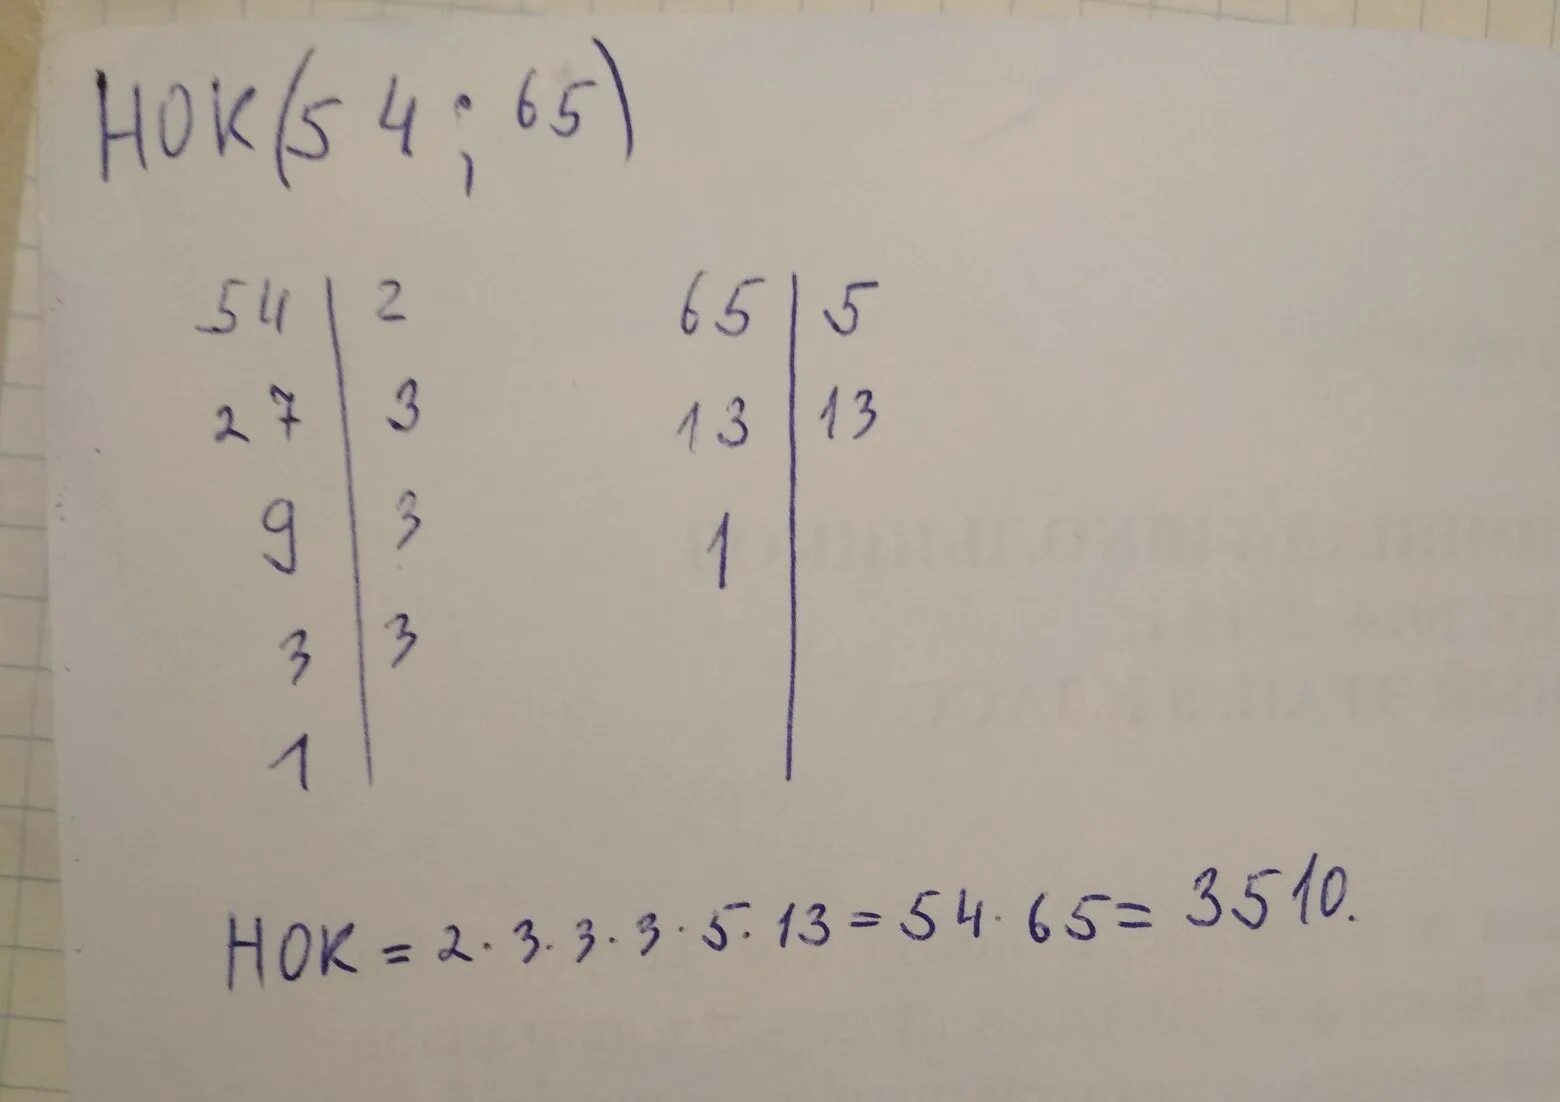 НОК(54; 65)
54 | 2 65 | 5
27 | 3 13 | 13
9 | 3 1 |
3 | 3
1 |
НОК = 2 · 3 · 3 · 3 · 5 · 13 = 54 · 65 = 3510.